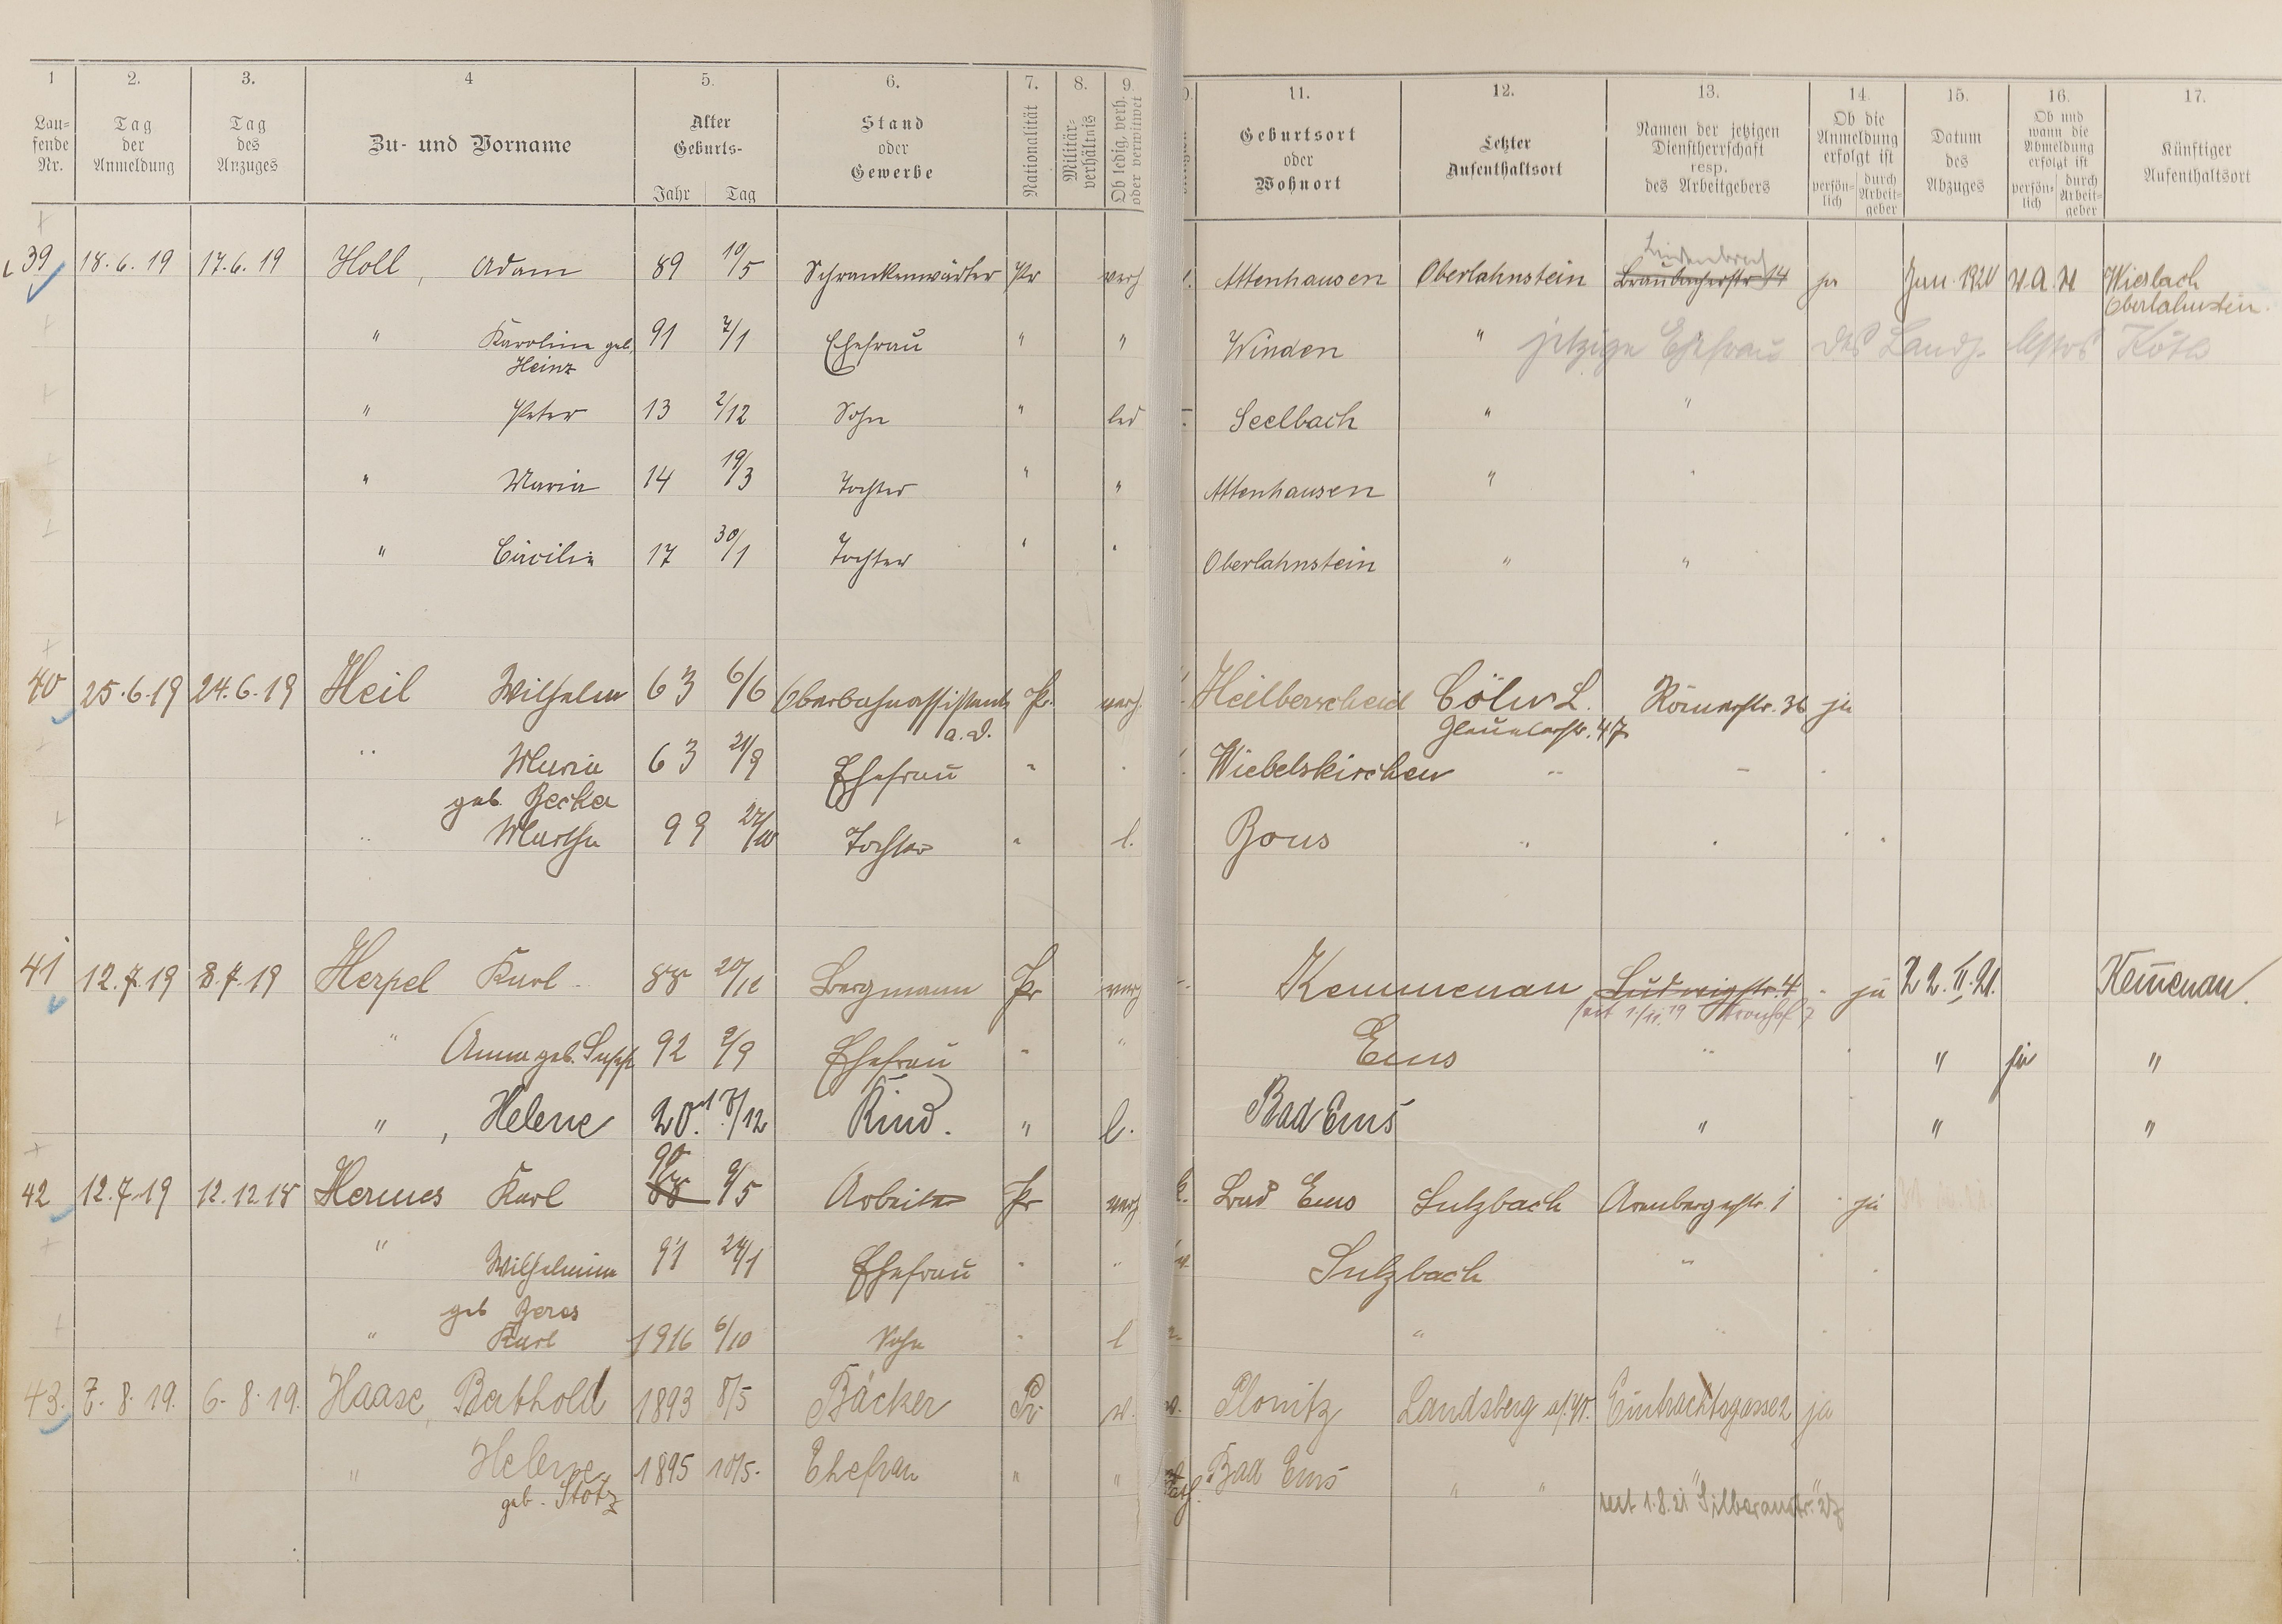 1 2. 3. 4 5. 6. 7. 8. 9. 11. 12. 13. 14. 15. 16. 17.
Lau-fende Nr. Tag der Anmeldung Tag des Anzuges Zu- und Vorname Alter Geburts- Jahr Tag Stand oder Gewerbe Nationalität Militär-verhältnis Ob ledig, verh. oder verwitwet Geburtsort oder Wohnort Letzter Aufenthaltsort Namen der jetzigen Dienstherrschaft resp. des Arbeitgebers Ob die Anmeldung erfolgt ist persön-lich durch Arbeit-geber Datum des Abzuges Ob und wann die Abmeldung erfolgt ist persön-lich durch Arbeit-geber Künftiger Aufenthaltsort
39 18.6.19 17.6.19 Holl, Adam 89 10/5 Schrankenwärter Pr verh Attenhausen Oberlahnstein Braubacherstr 14 ja Jan. 1920 Wiesbach
Oberlahnstein.
" Karolina geb. 91 7/1 Ehefrau " " Winden " jetzige Ehefrau des
Heinz
" Peter 13 2/12 Sohn " led Seelbach " "
" Maria 14 19/3 Tochter " " Attenhausen " "
" Cäcilia 17 30/1 Tochter " " Oberlahnstein " "
40 25.6.19 24.6.19 Heil Wilhelm 63 6/6 Oberbahnassistent Pr. verh. Heilberscheid Cöln L. Römerstr. 36 ja
a.D. 47
" Maria 63 21/9 Ehefrau " " Wiebelskirchen " "
geb. Becker
" Martha 99 27/10 Tochter " l. Bous " "
41 12.7.19 8.7.19 Herpel Karl 88 20/12 Bergmann Pr verh Kemmenau Ludwigstr. 4 ja 22.II.21. Kemenau.
seit 1/11.19
" Anna geb. 92 2/9 Ehefrau " " Ems " " ja "
" , Helene 20. 18/12 Kind. " l. Bad Ems " " "
90
42 12.7.19 12.12.18 Hermes Karl 88 9/5 Arbeiter Pr verh Bad Ems Sulzbach Arenbergerstr. 1 ja
" Wilhelmine 91 24/1 Ehefrau " " Sulzbach "
geb Beres
" Karl 1916 6/10 Sohn " l " "
43. 7.8.19. 6.8.19. Haase, Berthold 1893 8/5 Bäcker Pr. v. Plonitz Landsberg a/W. Eintrachtsgasse 2 ja
" Helene 1895 10/5. Ehefrau " " Bad Ems " " "
geb. Stotz seit 1.8.21 Silberaustr. 27